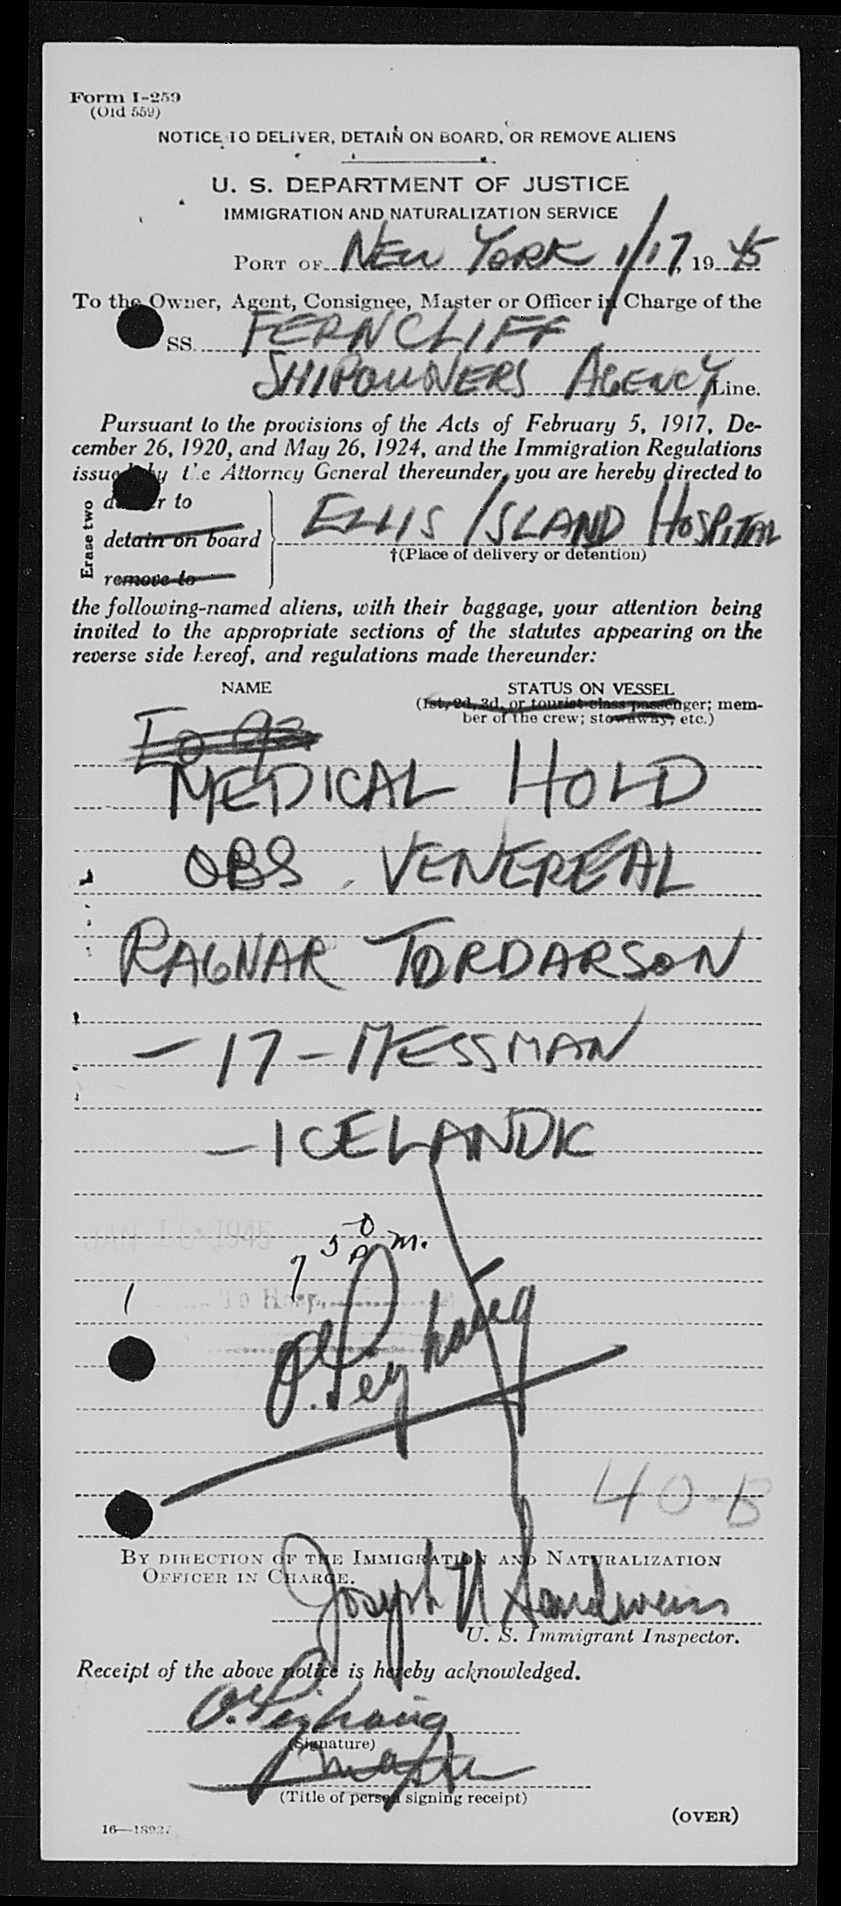 Form I-259
(Old 559)
NOTICE TO DELIVER, DETAIN ON BOARD, OR REMOVE ALIENS
U. S. DEPARTMENT OF JUSTICE
IMMIGRATION AND NATURALIZATION SERVICE
PORT OF NEW YORK 1/17, 19 45
To the Owner, Agent, Consignee, Master or Officer in Charge of the
SS. FERNCLIFF
SHIPOWNERS AGENCY Line.
Pursuant to the provisions of the Acts of February 5, 1917, De-
cember 26, 1920, and May 26, 1924, and the Immigration Regulations
issued by the Attorney General thereunder, you are hereby directed to
Erase two
deliver to
detain on board
remove to
ELLIS ISLAND HOSPITAL
†(Place of delivery or detention)
the following-named aliens, with their baggage, your attention being
invited to the appropriate sections of the statutes appearing on the
reverse side hereof, and regulations made thereunder:
NAME
STATUS ON VESSEL
(1st, 2d, 3d, or tourist class passenger; mem-
ber of the crew; stowaway, etc.)
MEDICAL HOLD
OBS. VENEREAL
RAGNAR TORDARSON
- 17 - MESSMAN
- ICELANDIC
7 50 P m.
To Hosp.
1
40-B
BY DIRECTION OF THE IMMIGRATION AND NATURALIZATION
OFFICER IN CHARGE.
Joseph
U. S. Immigrant Inspector.
Receipt of the above notice is hereby acknowledged.
(Signature)
Master
(Title of person signing receipt)
(OVER)